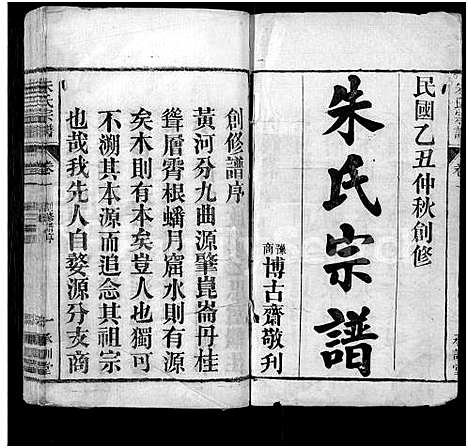 民國乙丑仲秋創修
朱氏宗譜
豫商博古齋敬刊
創修譜序
黃河分九曲源肇崑崙丹桂
聳層霄根蟠月窟水則有源
矣木則有本矣豈人也獨可
不溯其本源而追念其祖宗
也哉我先人自婺源分支商
朱氏宗譜